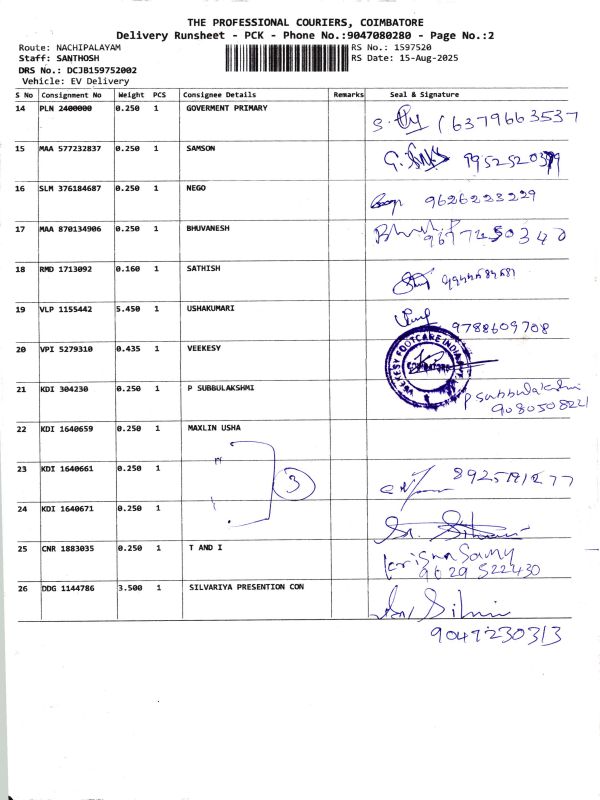 THE PROFESSIONAL COURIERS, COIMBATORE
Delivery Runsheet - PCK - Phone No.:9047080280 - Page No.:2
Route: NACHIPALAYAM RS No.: 1597520
Staff: SANTHOSH RS Date: 15-Aug-2025
DRS No.: DCJB159752002
Vehicle: EV Delivery
S No Consignment No Weight PCS Consignee Details Remarks Seal & Signature
14 PLN 2400000 0.250 1 GOVERMENT PRIMARY 6379663537
15 MAA 577232837 0.250 1 SAMSON
16 SLM 376184687 0.250 1 NEGO 9626223229
17 MAA 870134906 0.250 1 BHUVANESH
18 RMD 1713092 0.160 1 SATHISH
19 VLP 1155442 5.450 1 USHAKUMARI 9788609708
20 VPI 5279310 0.435 1 VEEKESY VEEKESY FOOTCARE INDIA COIMBATORE
21 KDI 304230 0.250 1 P SUBBULAKSHMI P Subbulakshmi
9080508221
22 KDI 1640659 0.250 1 MAXLIN USHA
23 KDI 1640661 0.250 1 " 3
24 KDI 1640671 0.250 1
25 CNR 1883035 0.250 1 T AND I
9629522430
26 DDG 1144786 3.500 1 SILVARIYA PRESENTION CON
9047230313